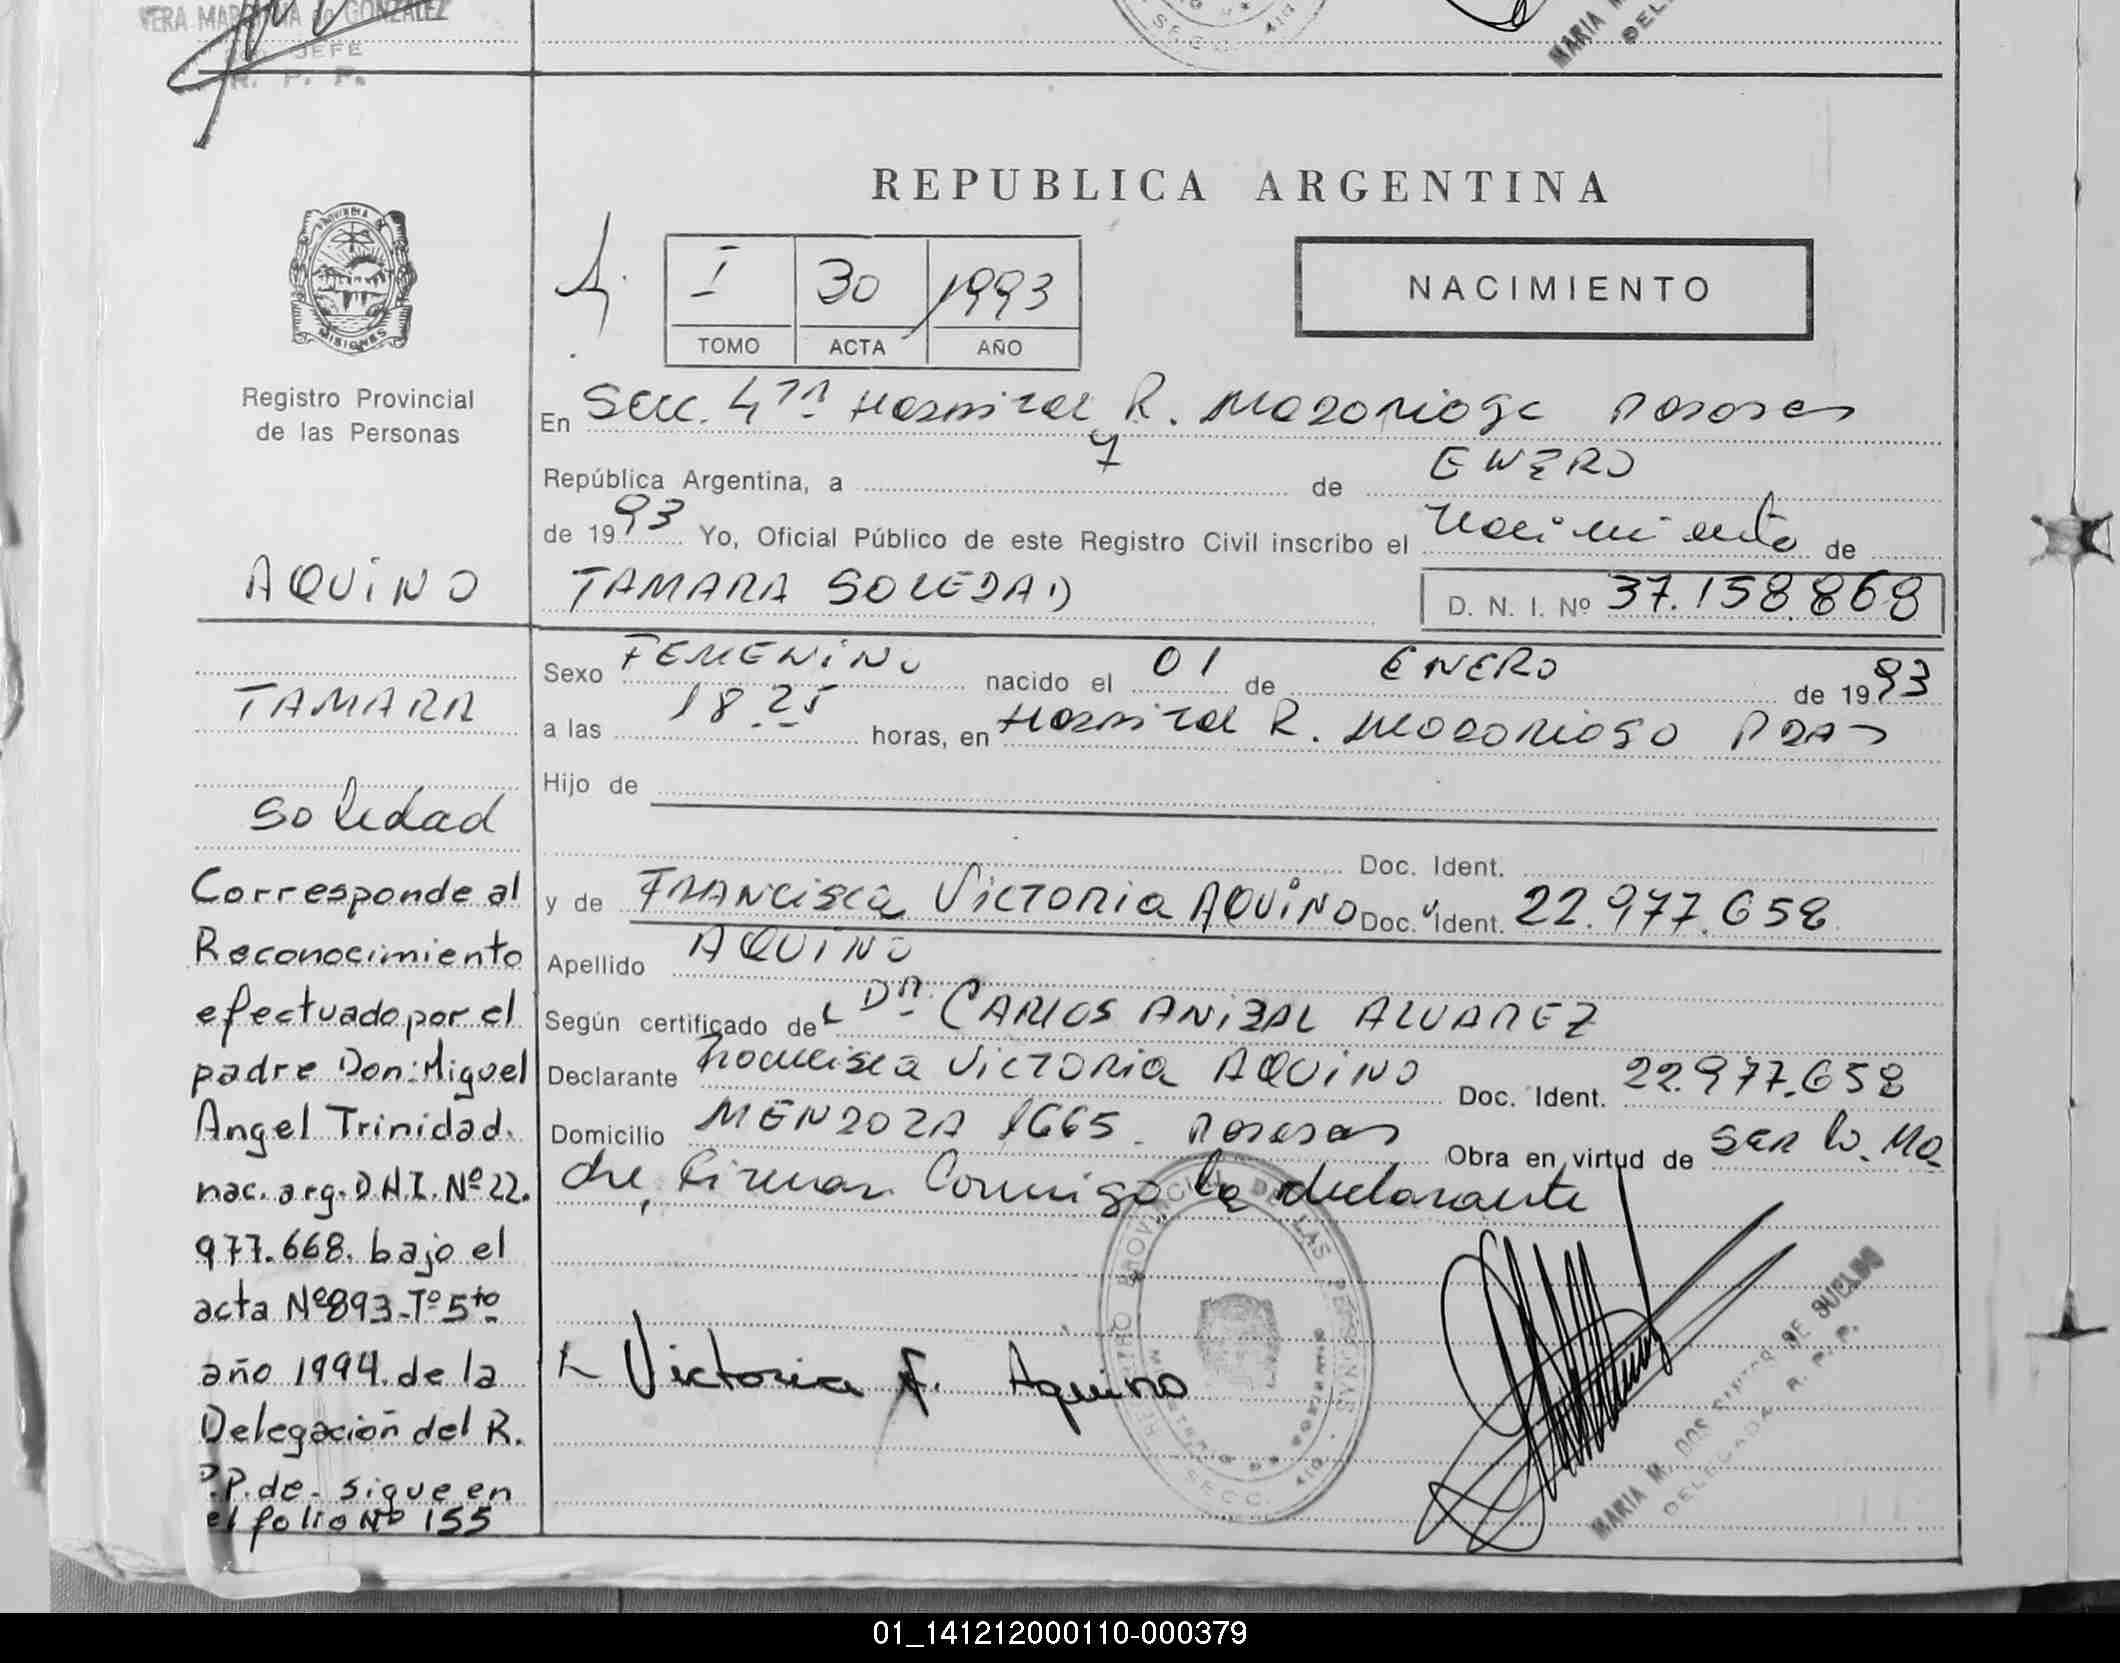 VERA MARGARITA de GONZALEZ
JEFE
R. P. P.
SECC. 4ta
MARIA M.
DEL
REPUBLICA ARGENTINA
I 30 1993
TOMO ACTA AÑO
NACIMIENTO
PROVINCIA DE
MISIONES
Registro Provincial
de las Personas
En Secc. 4ta Hospital R. Madariaga Posadas
República Argentina, a 7 de ENERO
de 1993 Yo, Oficial Público de este Registro Civil inscribo el Nacimiento de
AQUINO TAMARA SOLEDAD D. N. I. Nº 37.158.868
Sexo FEMENINO nacido el 01 de ENERO de 1993
TAMARA
a las 18.25 horas, en Hospital R. Madariaga Pdas
Hijo de
Soledad
Doc. Ident.
y de FRANCISCA VICTORIA AQUINO Doc. Ident. 22.977.658
Apellido AQUINO
Según certificado de Dr. CARLOS ANIBAL ALVAREZ
Declarante Francisca VICTORIA AQUINO Doc. Ident. 22.977.658
Domicilio MENDOZA 1665. Posadas Obra en virtud de SER la Ma
dre, Firman Conmigo la declarante
Corresponde al
Reconocimiento
efectuado por el
padre Don: Miguel
Angel Trinidad.
nac. arg. D.N.I. Nº 22.
977.668. bajo el
acta Nº 893-Tº 5to
año 1994. de la
Delegación del R.
P.P. de - sigue en
el folio Nº 155
Victoria F. Aquino
REGISTRO PROVINCIAL DE LAS PERSONAS
Ministerio de Gobierno
SECC. 4ta
MARIA M. DOS SANTOS DE SUELDO
DELEGADA R. P. P.
01_141212000110-000379